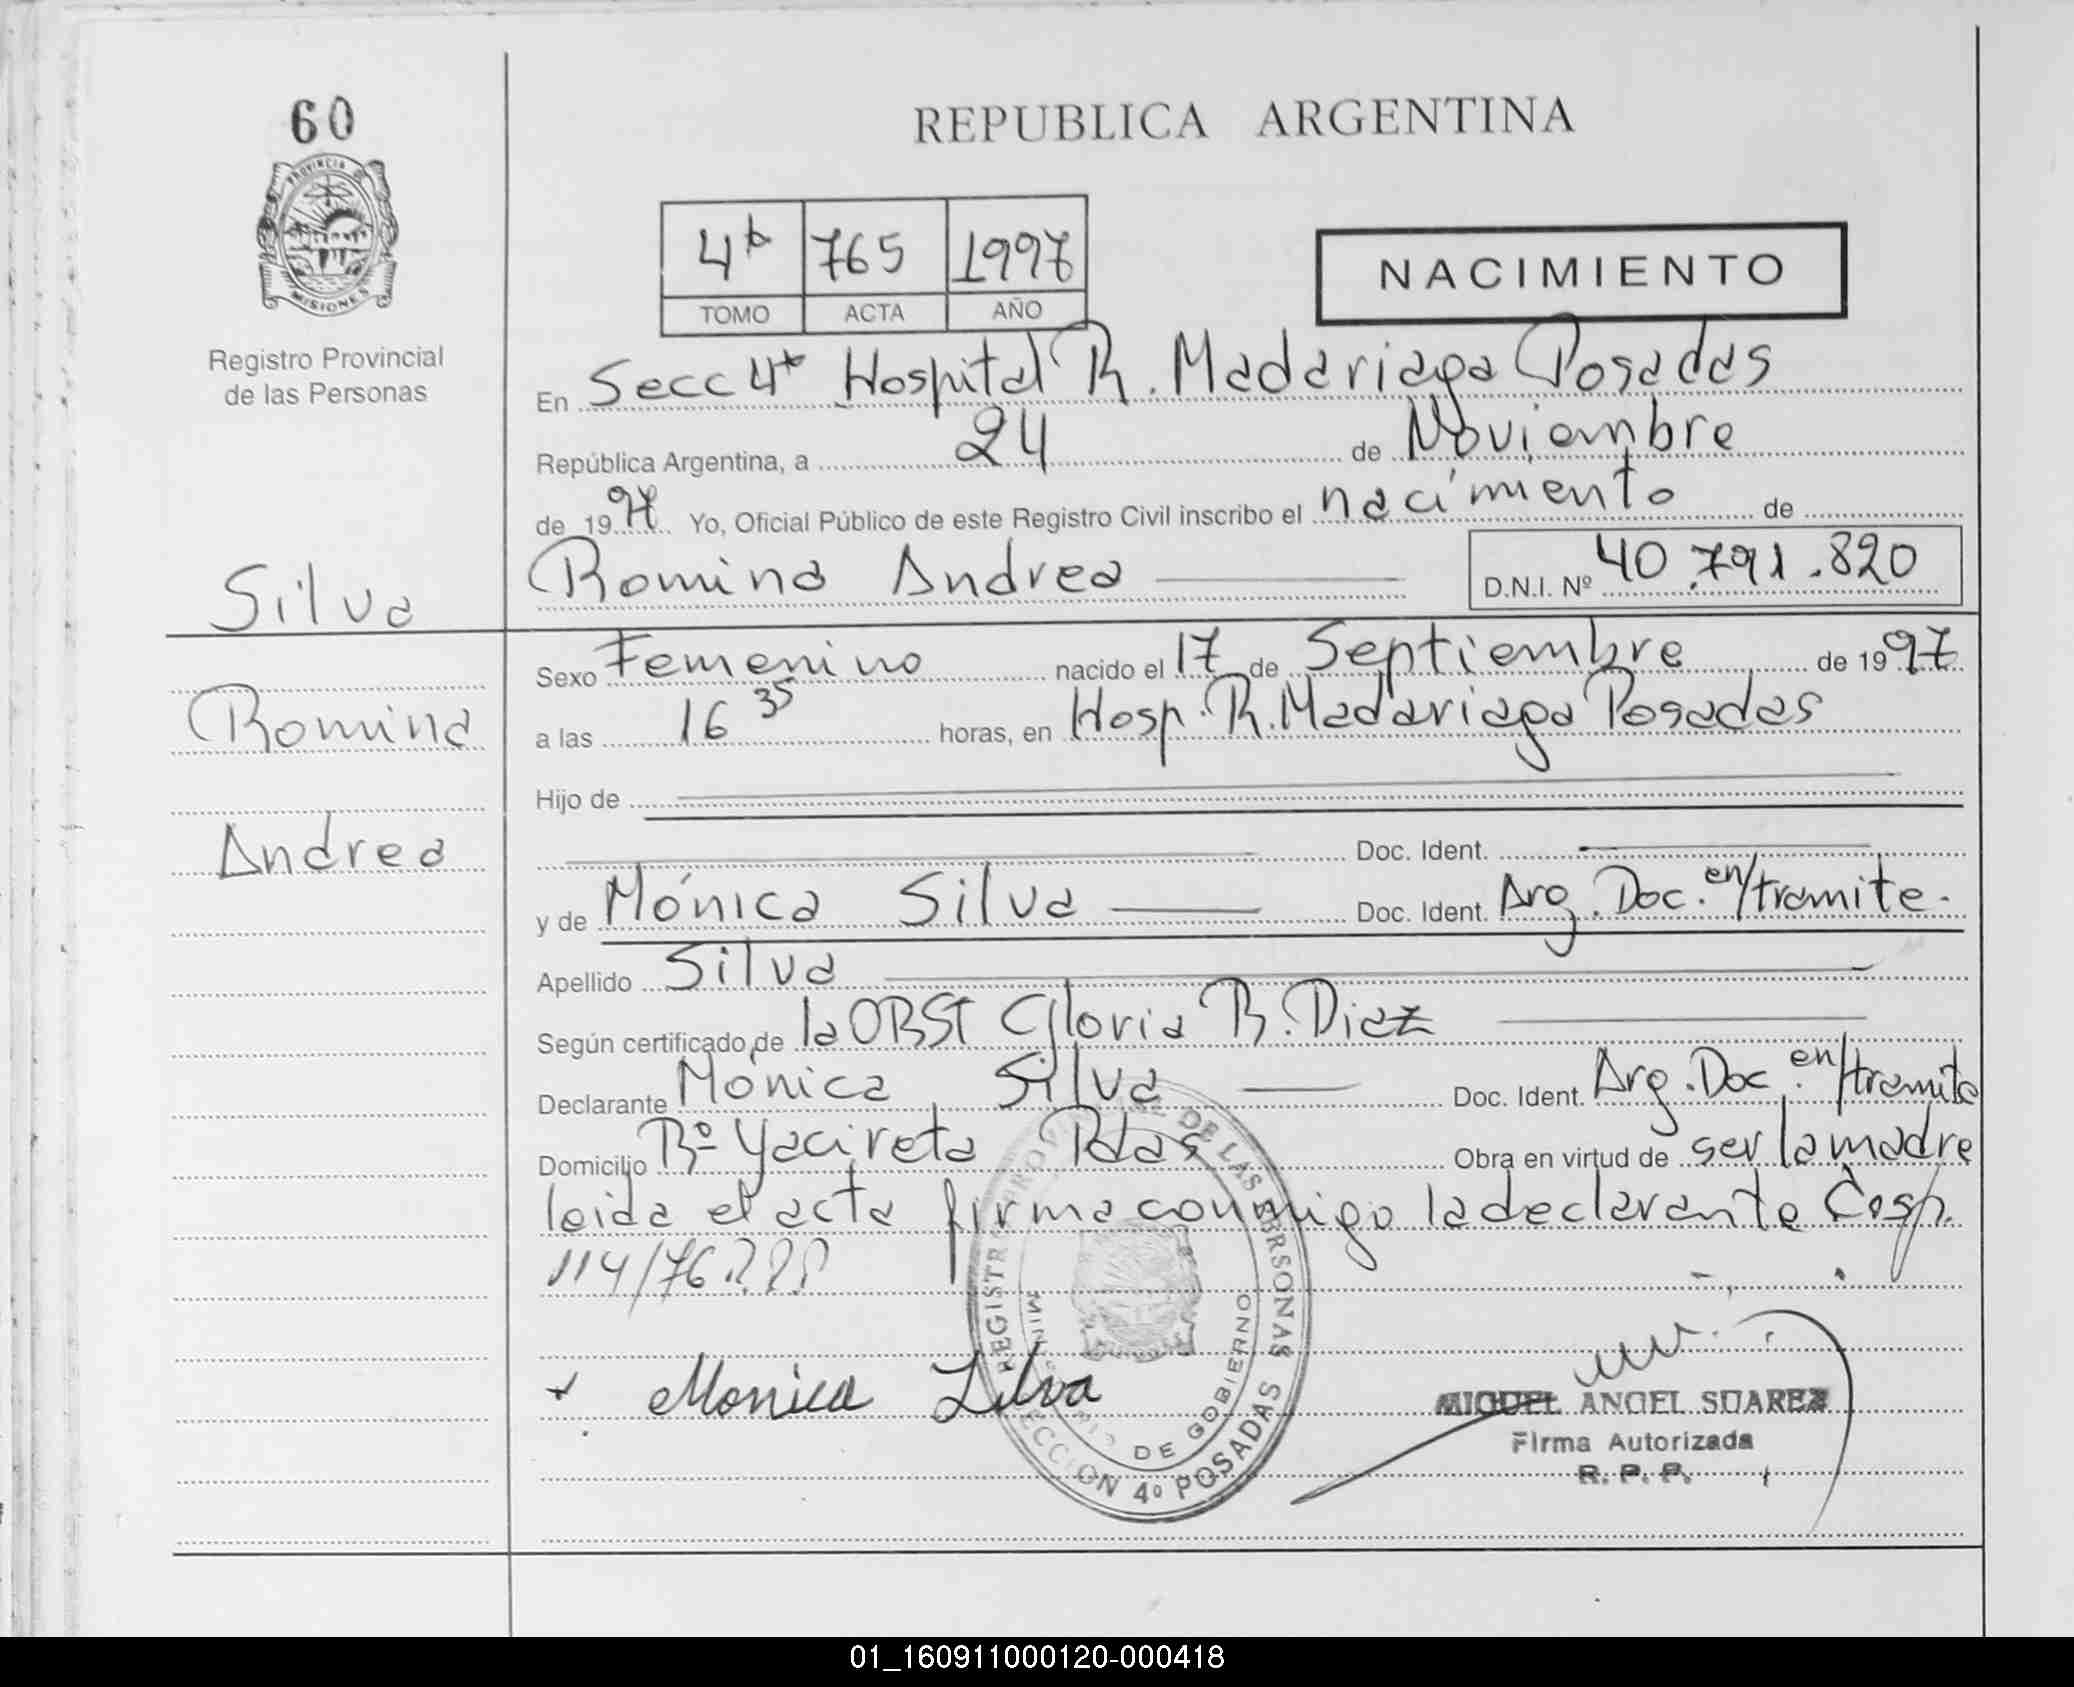 60
PROVINCIA DE
MISIONES
Registro Provincial
de las Personas
REPUBLICA ARGENTINA
4ta 765 1997
TOMO ACTA AÑO
NACIMIENTO
En Secc 4ta Hospital R. Madariaga Posadas
República Argentina, a 24 de Noviembre
de 1997 Yo, Oficial Público de este Registro Civil inscribo el nacimiento de
Silva
Romina Andrea
D.N.I. Nº 40.791.820
Sexo Femenino nacido el 17 de Septiembre de 1997
Romina
a las 16 35 horas, en Hosp. R. Madariaga Posadas
Hijo de
Andrea
Doc. Ident.
y de Mónica Silva Doc. Ident. Arg. Doc. en/tramite.
Apellido Silva
Según certificado de la OBST Gloria B. Diaz
Declarante Mónica Silva Doc. Ident. Arg. Doc. en/tramite
Domicilio Bº Yacireta Pdas Obra en virtud de ser la madre
leida el acta firma conmigo la declarante
114/76
Monica Silva
REGISTRO PROVINCIAL DE LAS PERSONAS
MINISTERIO DE GOBIERNO
SECCION 4º POSADAS
MIGUEL ANGEL SUAREZ
Firma Autorizada
R. P. P.
01_160911000120-000418